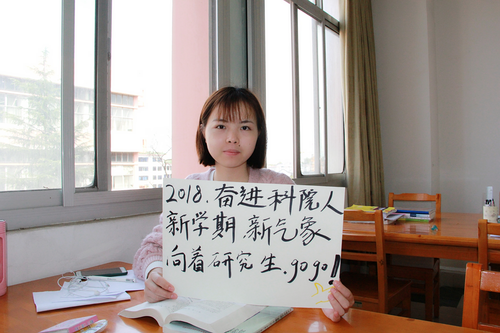 2018. 奋进科院人
新学期.新气象
向着研究生.gogo!!